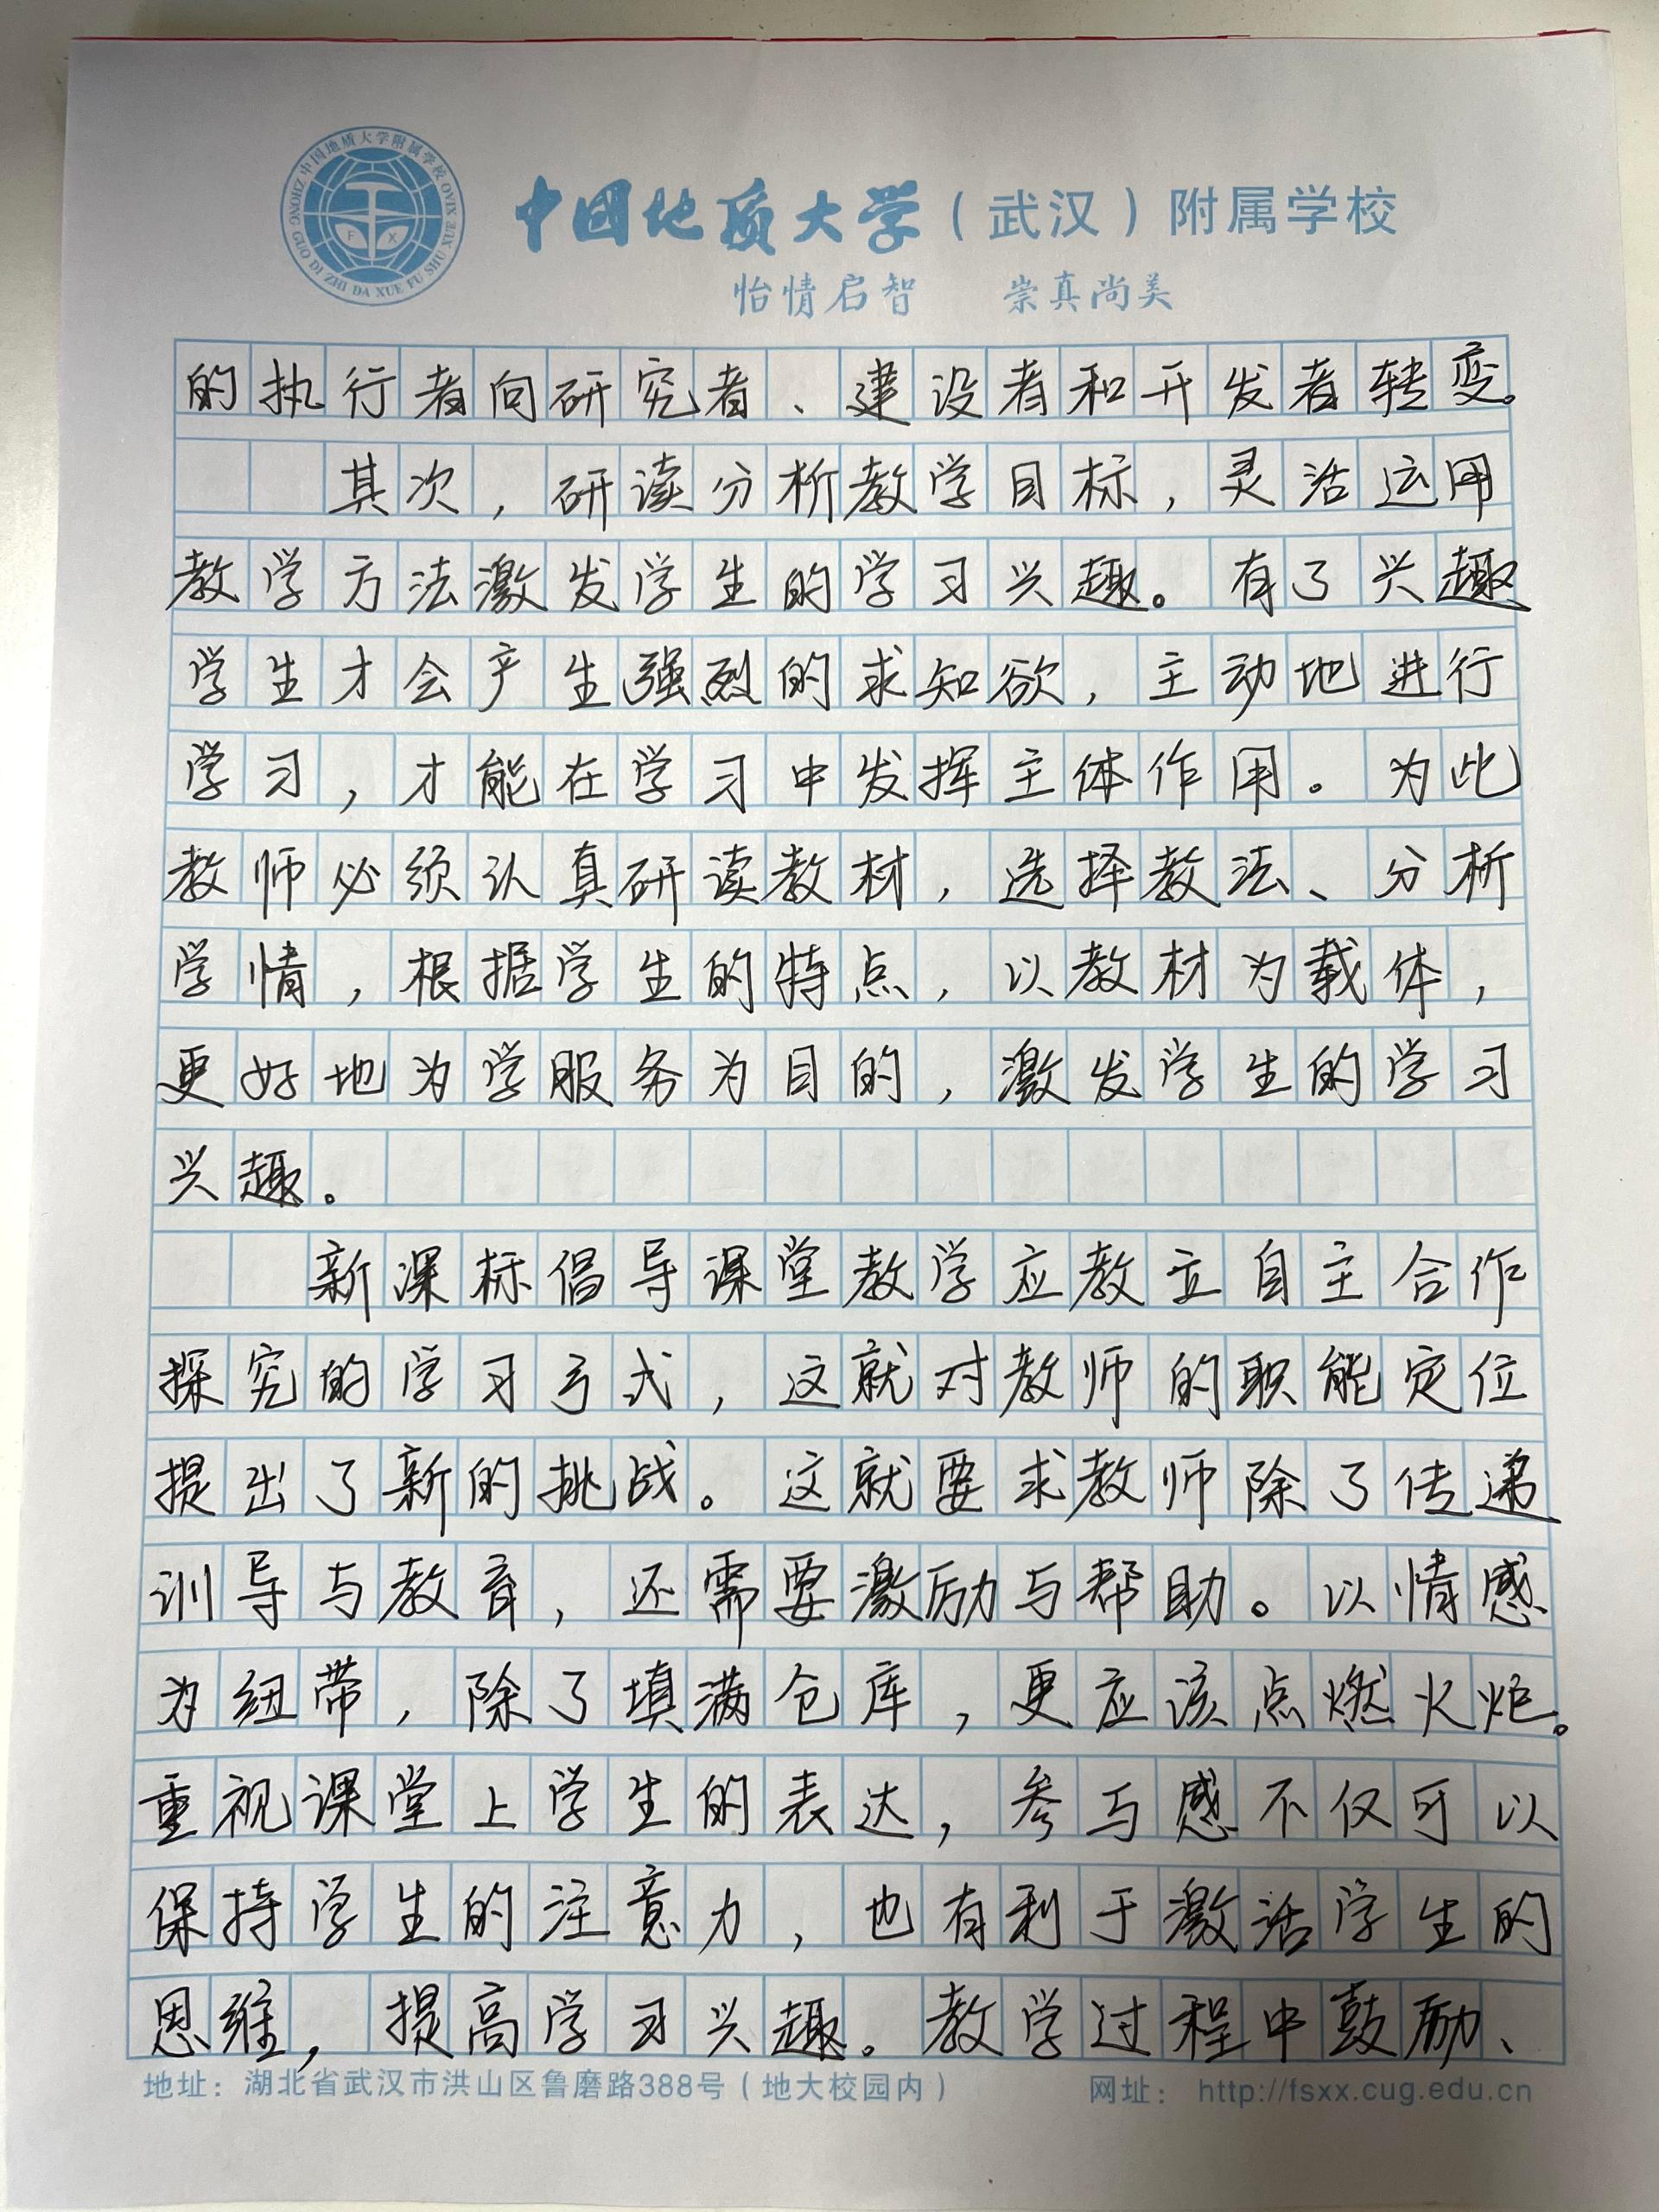 中国地质大学附属学校
ZHONG GUO DI ZHI DA XUE FU SHU XUE XIAO
F X
中国地质大学（武汉）附属学校
怡情启智 崇真尚美
的执行者向研究者、建设者和开发者转变。
其次，研读分析教学目标，灵活运用
教学方法激发学生的学习兴趣。有了兴趣
学生才会产生强烈的求知欲，主动地进行
学习，才能在学习中发挥主体作用。为此
教师必须认真研读教材，选择教法、分析
学情，根据学生的特点，以教材为载体，
更好地为学服务为目的，激发学生的学习
兴趣。
新课标倡导课堂教学应教立自主合作
探究的学习方式，这就对教师的职能定位
提出了新的挑战。这就要求教师除了传递
训导与教育，还需要激励与帮助。以情感
为纽带，除了填满仓库，更应该点燃火炬。
重视课堂上学生的表达，参与感不仅可以
保持学生的注意力，也有利于激活学生的
思维，提高学习兴趣。教学过程中鼓励、
地址：湖北省武汉市洪山区鲁磨路388号（地大校园内） 网址： http://fsxx.cug.edu.cn